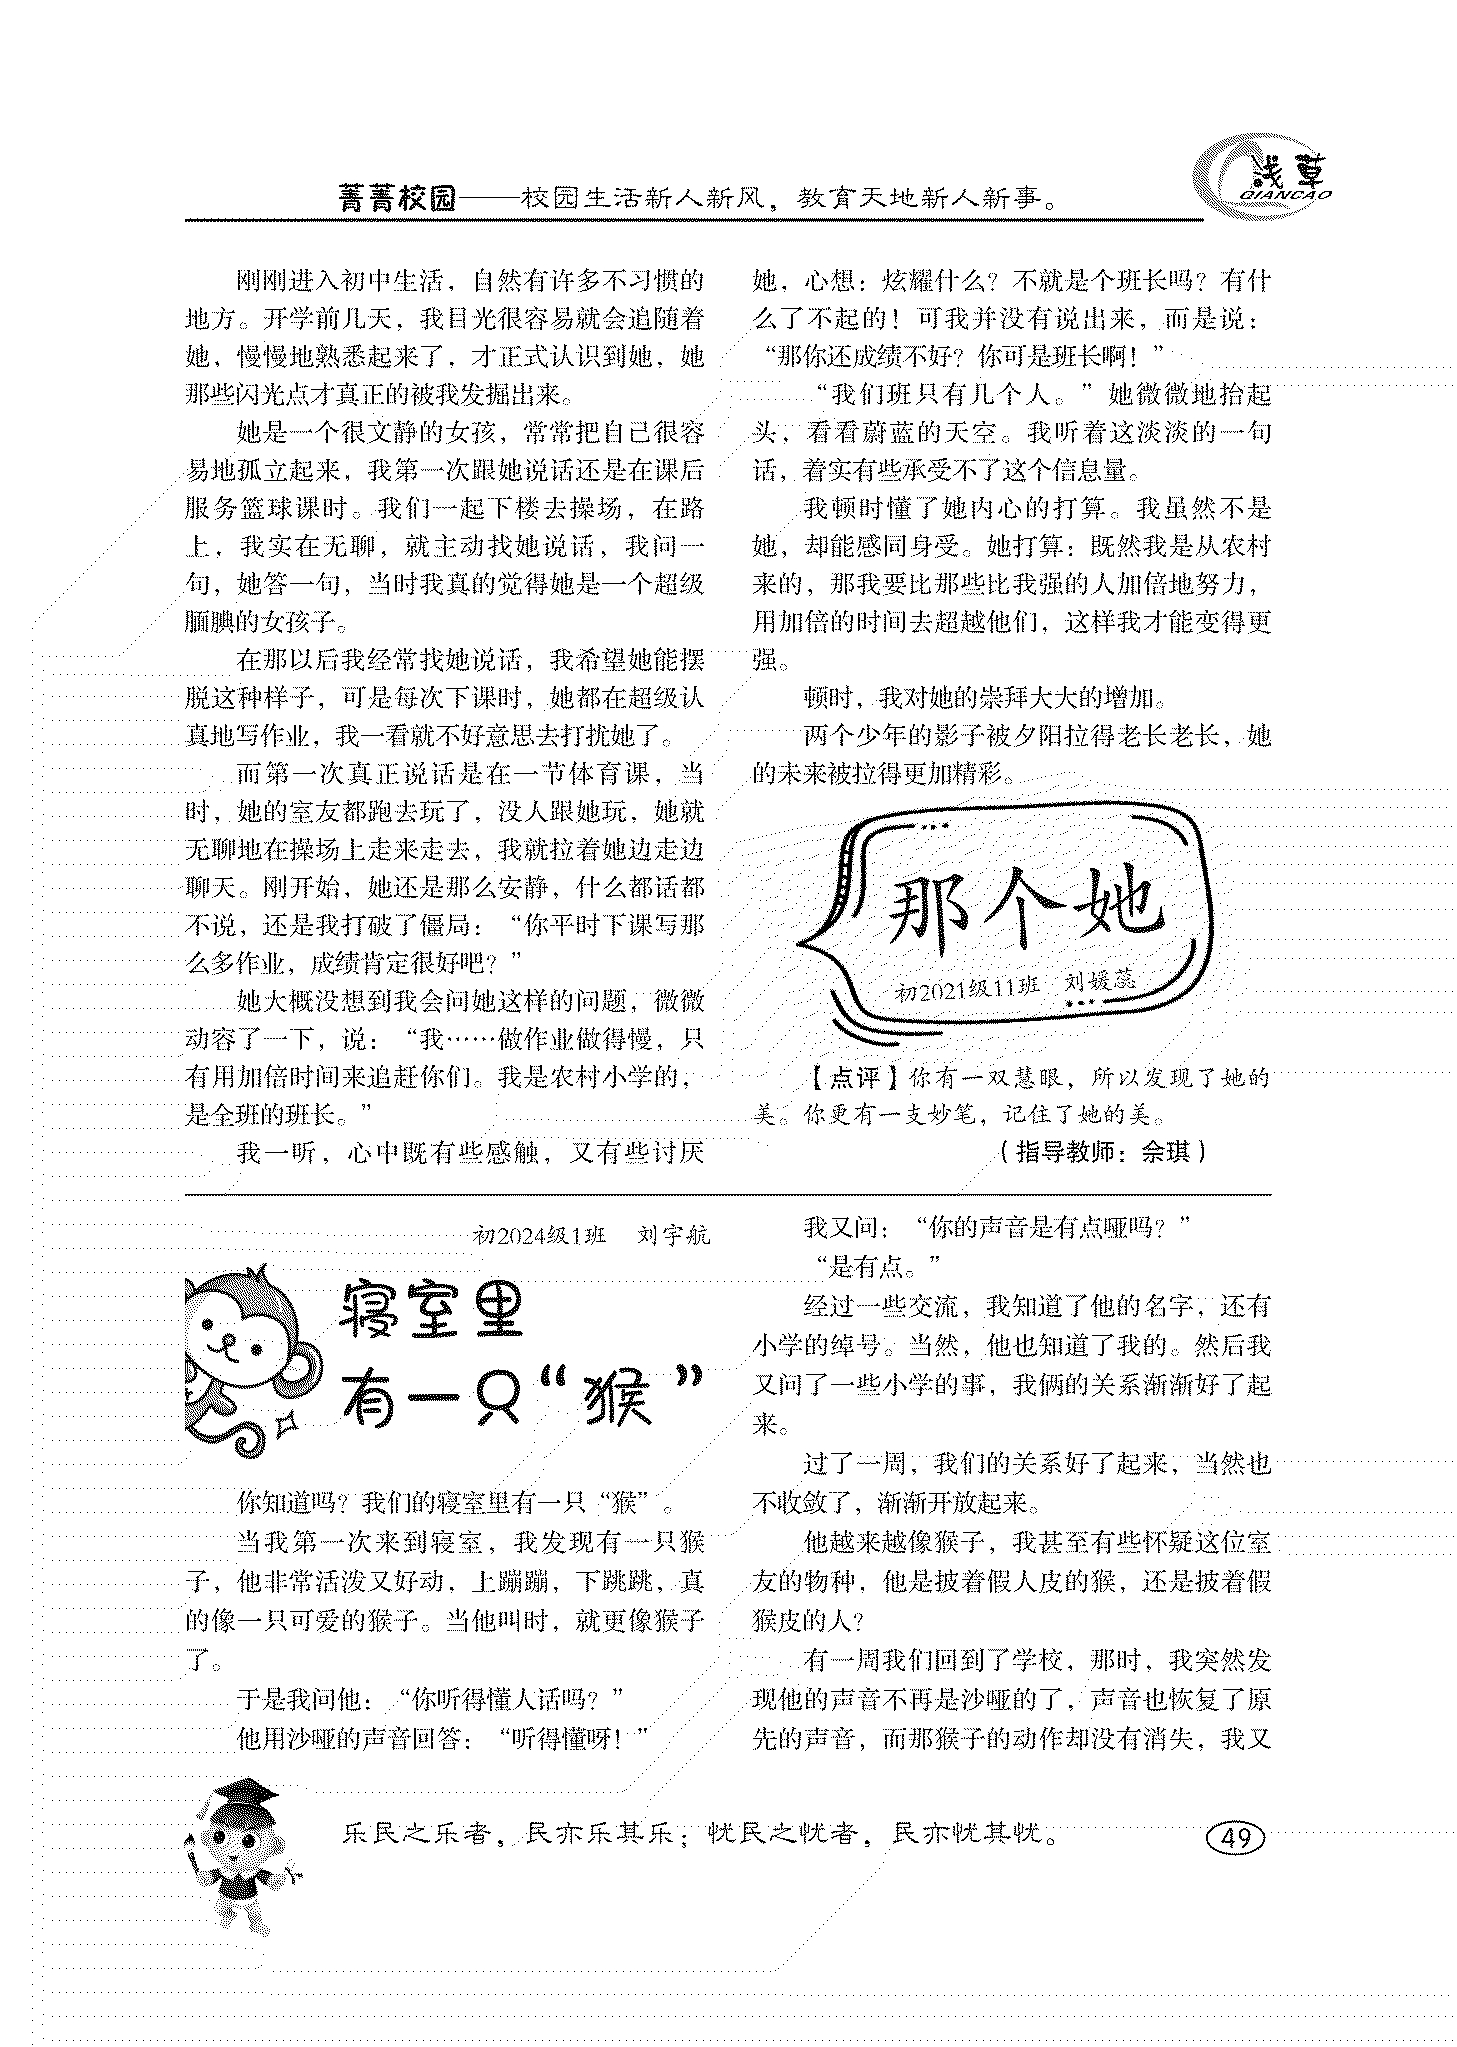 菁菁校园——校园生活新人新风，教育天地新人新事。
浅草
QIANCAO
刚刚进入初中生活，自然有许多不习惯的
地方。开学前几天，我目光很容易就会追随着
她，慢慢地熟悉起来了，才正式认识到她，她
那些闪光点才真正的被我发掘出来。
她是一个很文静的女孩，常常把自己很容
易地孤立起来，我第一次跟她说话还是在课后
服务篮球课时。我们一起下楼去操场，在路
上，我实在无聊，就主动找她说话，我问一
句，她答一句，当时我真的觉得她是一个超级
腼腆的女孩子。
在那以后我经常找她说话，我希望她能摆
脱这种样子，可是每次下课时，她都在超级认
真地写作业，我一看就不好意思去打扰她了。
而第一次真正说话是在一节体育课，当
时，她的室友都跑去玩了，没人跟她玩，她就
无聊地在操场上走来走去，我就拉着她边走边
聊天。刚开始，她还是那么安静，什么都话都
不说，还是我打破了僵局：“你平时下课写那
么多作业，成绩肯定很好吧？”
她大概没想到我会问她这样的问题，微微
动容了一下，说：“我……做作业做得慢，只
有用加倍时间来追赶你们。我是农村小学的，
是全班的班长。”
我一听，心中既有些感触，又有些讨厌
她，心想：炫耀什么？不就是个班长吗？有什
么了不起的！可我并没有说出来，而是说：
“那你还成绩不好？你可是班长啊！”
“我们班只有几个人。”她微微地抬起
头，看看蔚蓝的天空。我听着这淡淡的一句
话，着实有些承受不了这个信息量。
我顿时懂了她内心的打算。我虽然不是
她，却能感同身受。她打算：既然我是从农村
来的，那我要比那些比我强的人加倍地努力，
用加倍的时间去超越他们，这样我才能变得更
强。
顿时，我对她的崇拜大大的增加。
两个少年的影子被夕阳拉得老长老长，她
的未来被拉得更加精彩。
那个她
初2021级11班 刘媛蕊
【点评】你有一双慧眼，所以发现了她的
美。你更有一支妙笔，记住了她的美。
（指导教师：佘琪）
初2024级1班 刘宇航
寝室里
有一只“猴”
你知道吗？我们的寝室里有一只“猴”。
当我第一次来到寝室，我发现有一只猴
子，他非常活泼又好动，上蹦蹦，下跳跳，真
的像一只可爱的猴子。当他叫时，就更像猴子
了。
于是我问他：“你听得懂人话吗？”
他用沙哑的声音回答：“听得懂呀！”
我又问：“你的声音是有点哑吗？”
“是有点。”
经过一些交流，我知道了他的名字，还有
小学的绰号。当然，他也知道了我的。然后我
又问了一些小学的事，我俩的关系渐渐好了起
来。
过了一周，我们的关系好了起来，当然也
不收敛了，渐渐开放起来。
他越来越像猴子，我甚至有些怀疑这位室
友的物种，他是披着假人皮的猴，还是披着假
猴皮的人？
有一周我们回到了学校，那时，我突然发
现他的声音不再是沙哑的了，声音也恢复了原
先的声音，而那猴子的动作却没有消失，我又
乐民之乐者，民亦乐其乐；忧民之忧者，民亦忧其忧。
49